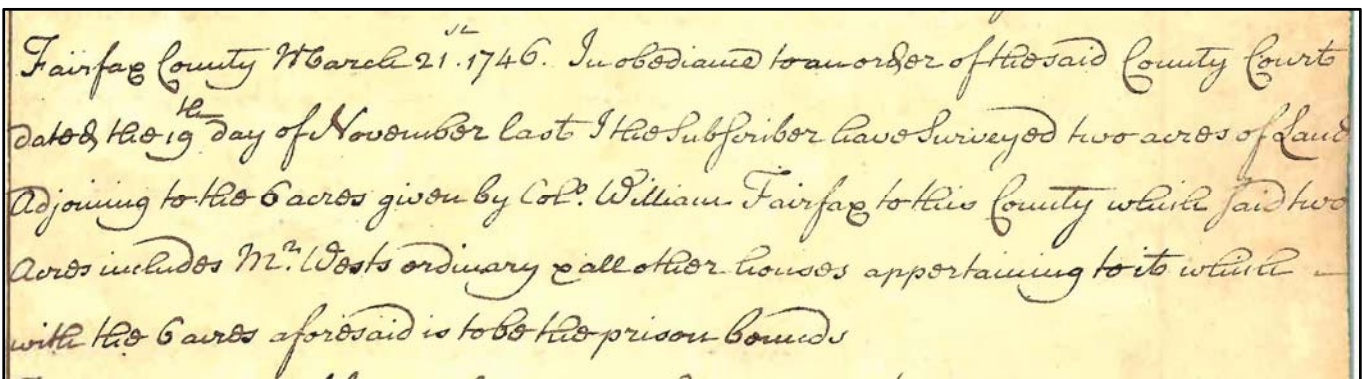 Fairfax County March 21.st 1746. In obediance to an order of the said County Court
dated the 19th day of November last I the Subscriber have Surveyed two acres of Land
Adjoining to the 6 acres given by Colo. William Fairfax to this County which said two
Acres includes Mr. Wests ordinary & all other houses appertaining to it which
with the 6 acres aforesaid is to be the prison bounds